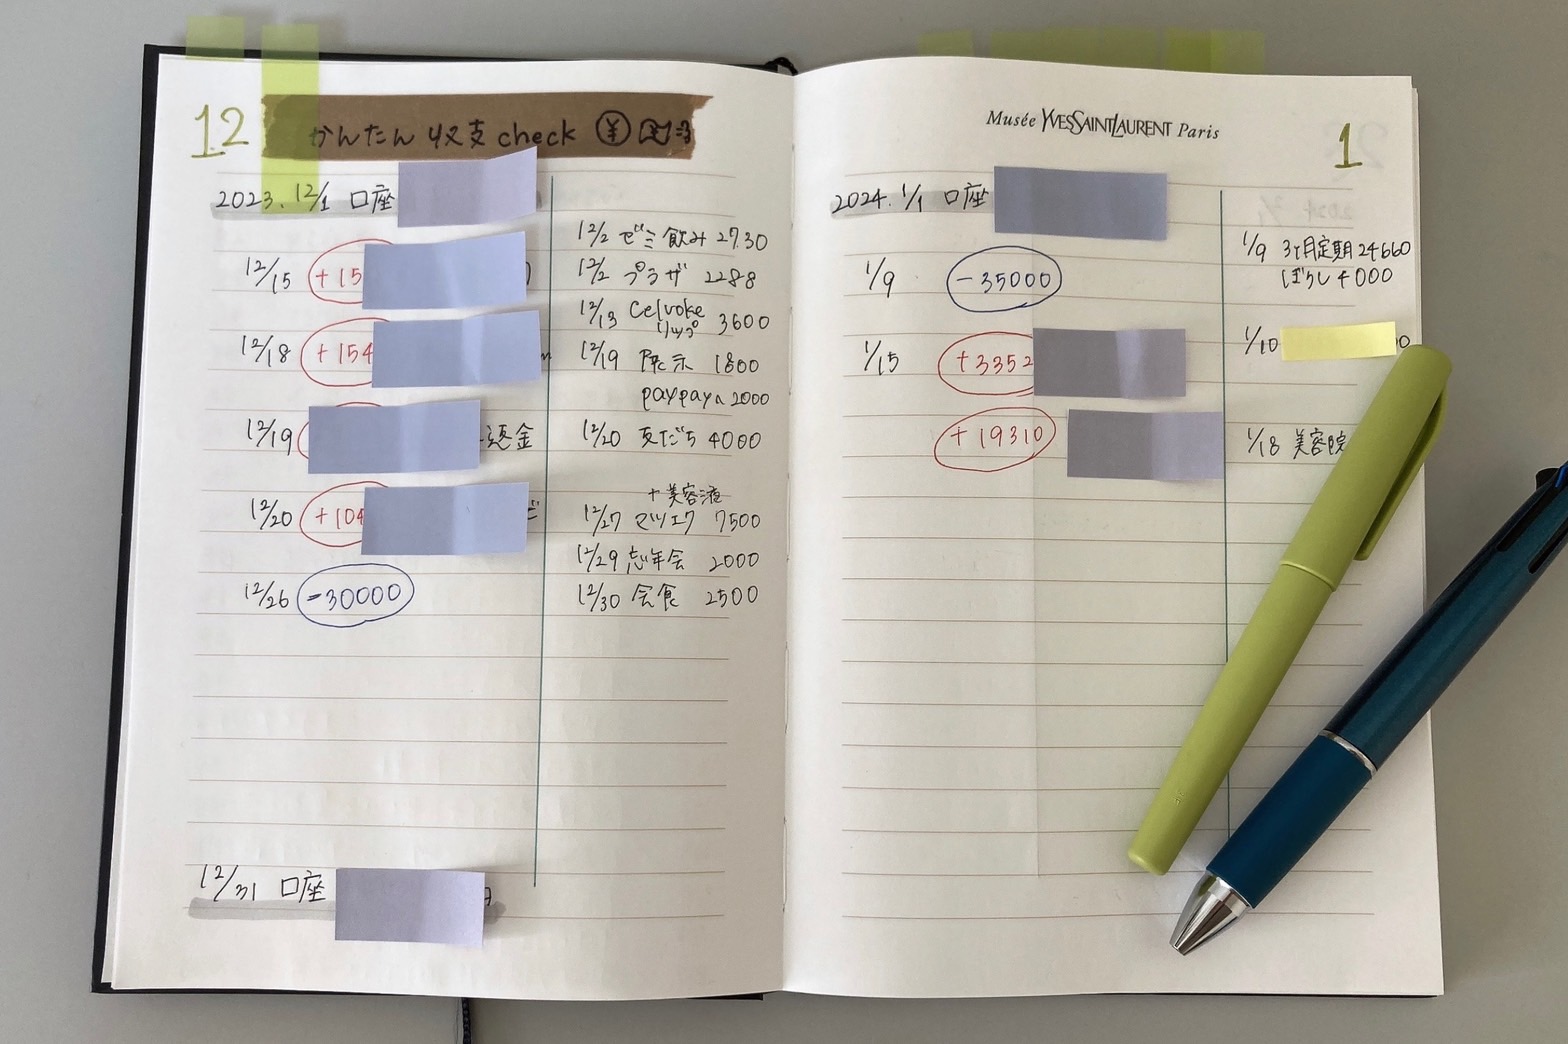 12
かんたん収支check ¥
2023. 12/1 口座
12/15 +15
12/18 +154
12/19 送金
12/20 +104
12/26 -30000
12/31 口座
12/2 ゼミ飲み 2730
12/2 プラザ 2288
12/13 Celvoke
リップ 3600
12/19 展示 1800
paypayへ 2000
12/20 友だち 4000
+美容液
12/27 マツエク 7500
12/29 忘年会 2000
12/30 会食 2500
Musée YVESSAINTLAURENT Paris
1
2024. 1/1 口座
1/9 -35000
1/15 +3352
+19310
1/9 3ヶ月定期 24660
ぼうし 4000
1/10
1/18 美容院